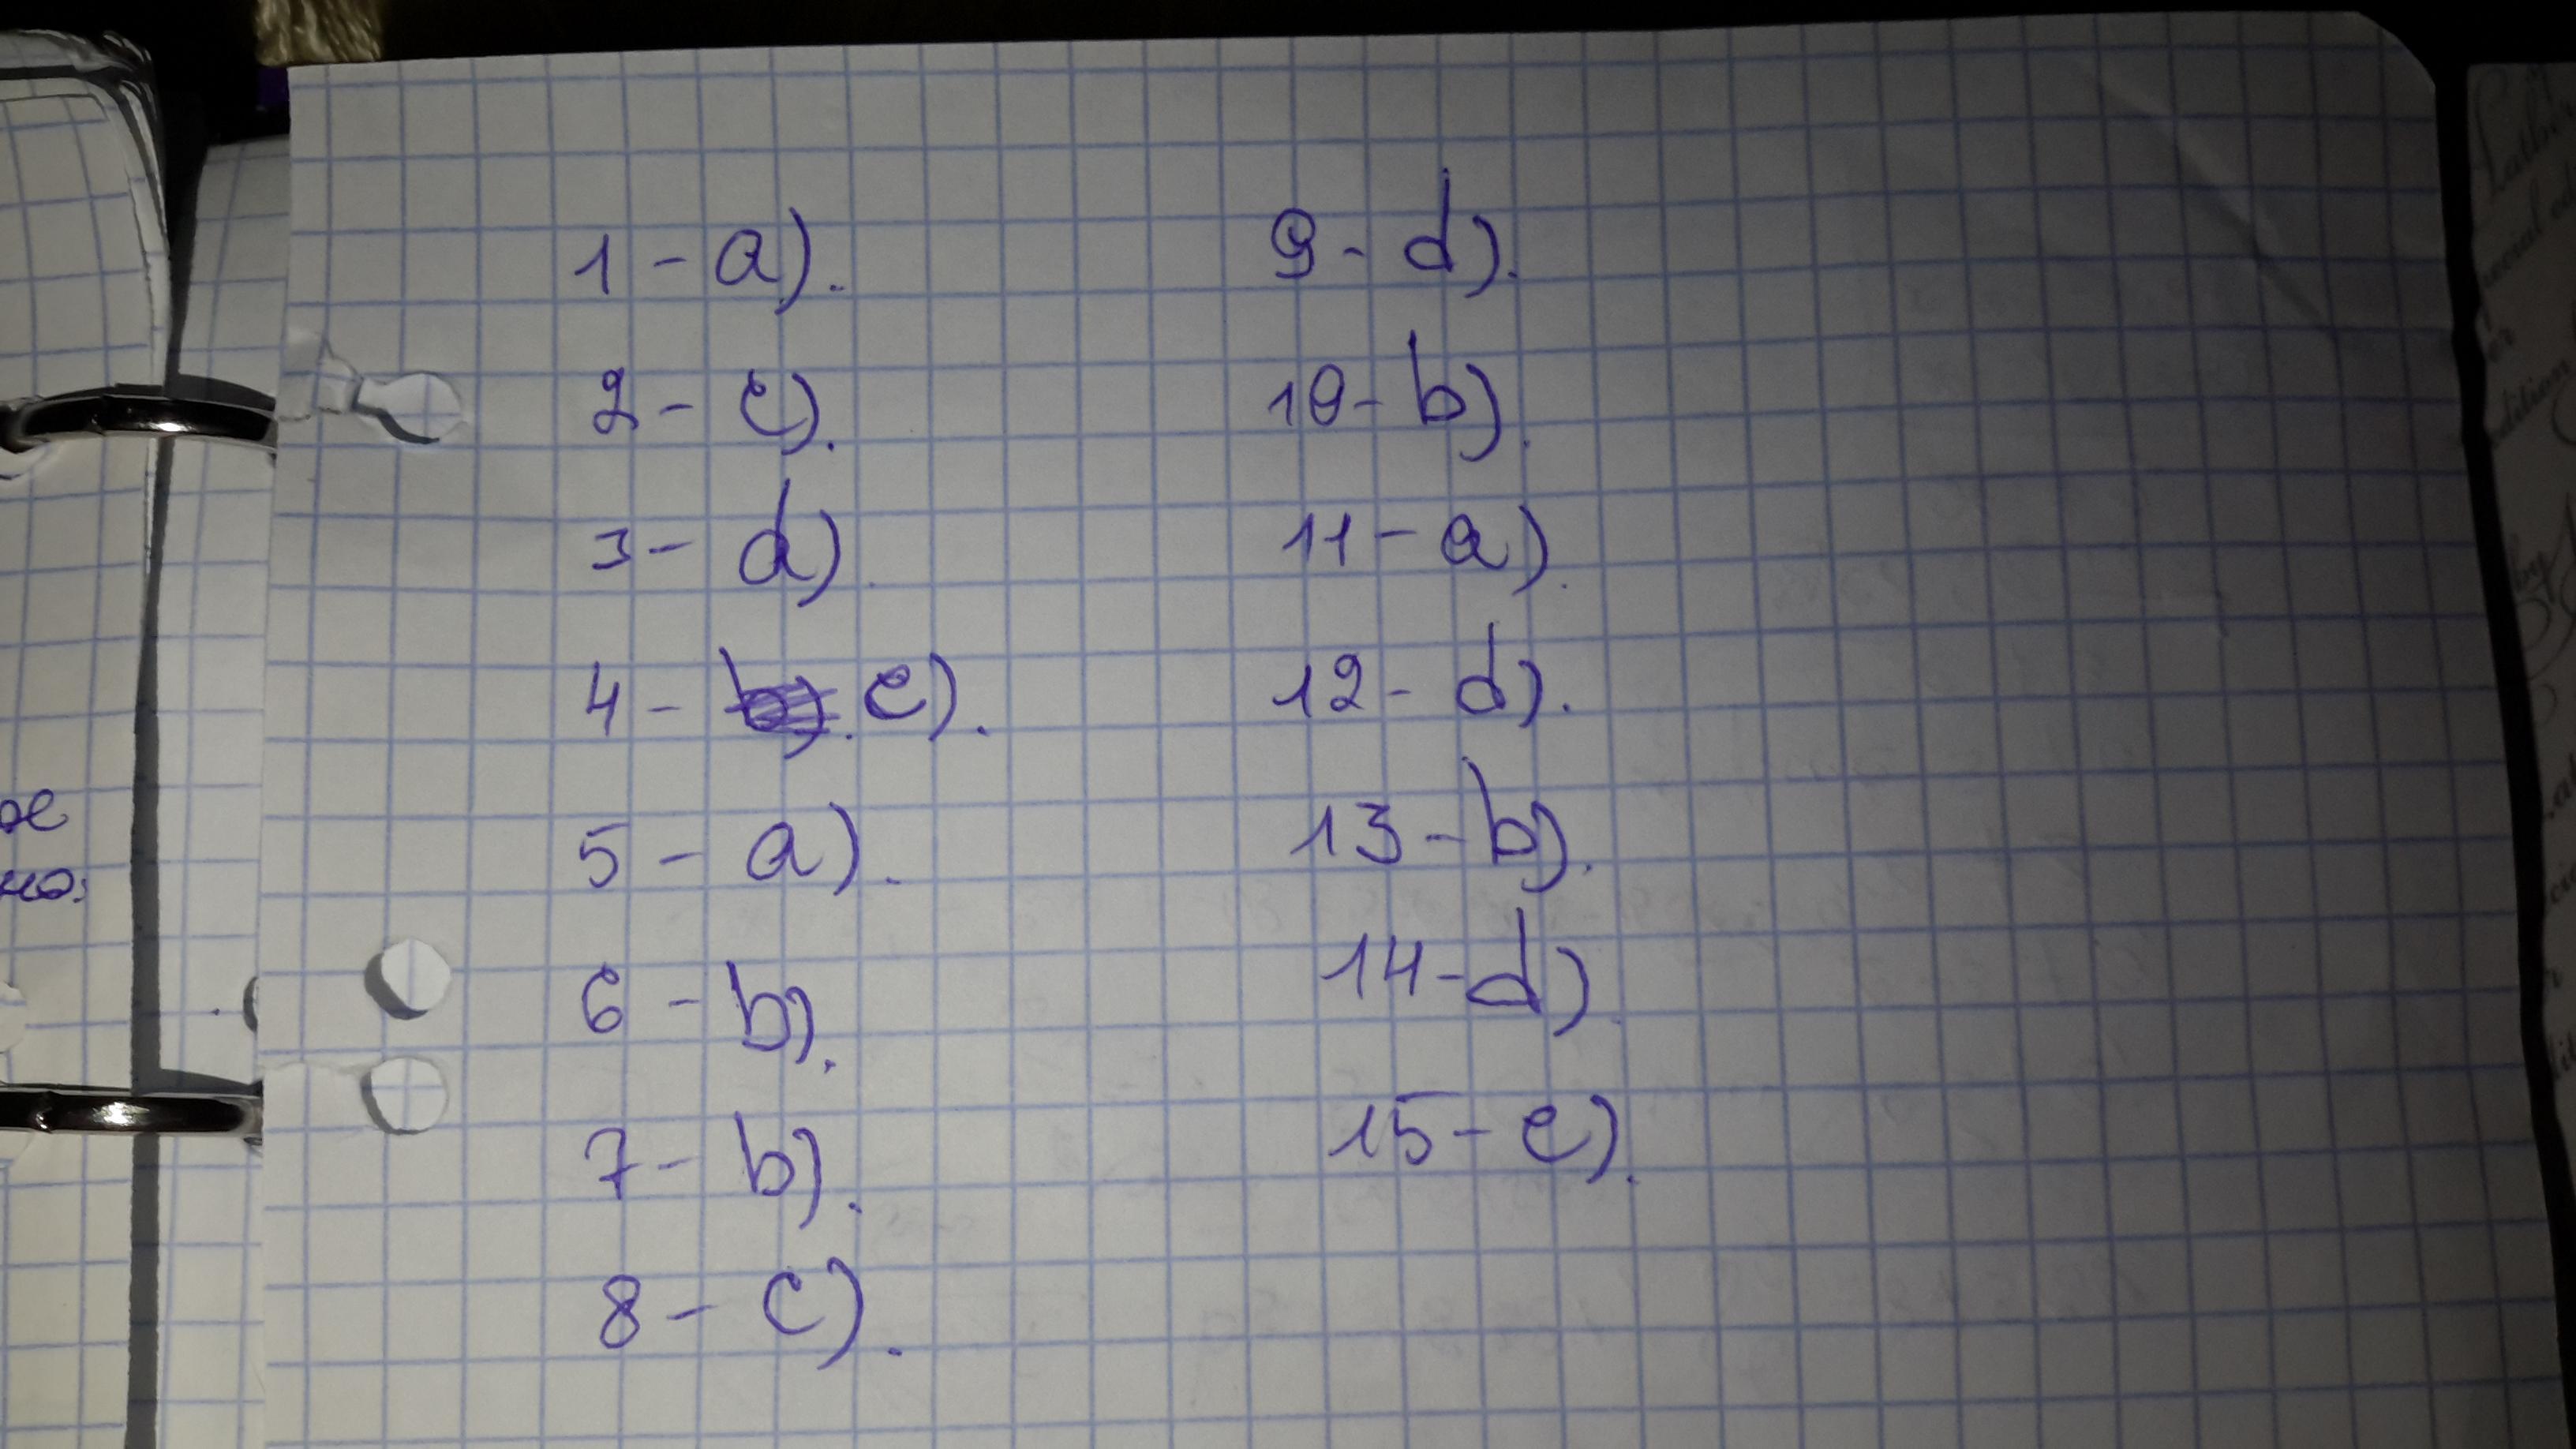 1 - a).
2 - c).
3 - d).
4 - c).
5 - a).
6 - b).
7 - b).
8 - c).
9 - d).
10 - b).
11 - a).
12 - d).
13 - b).
14 - d).
15 - c).